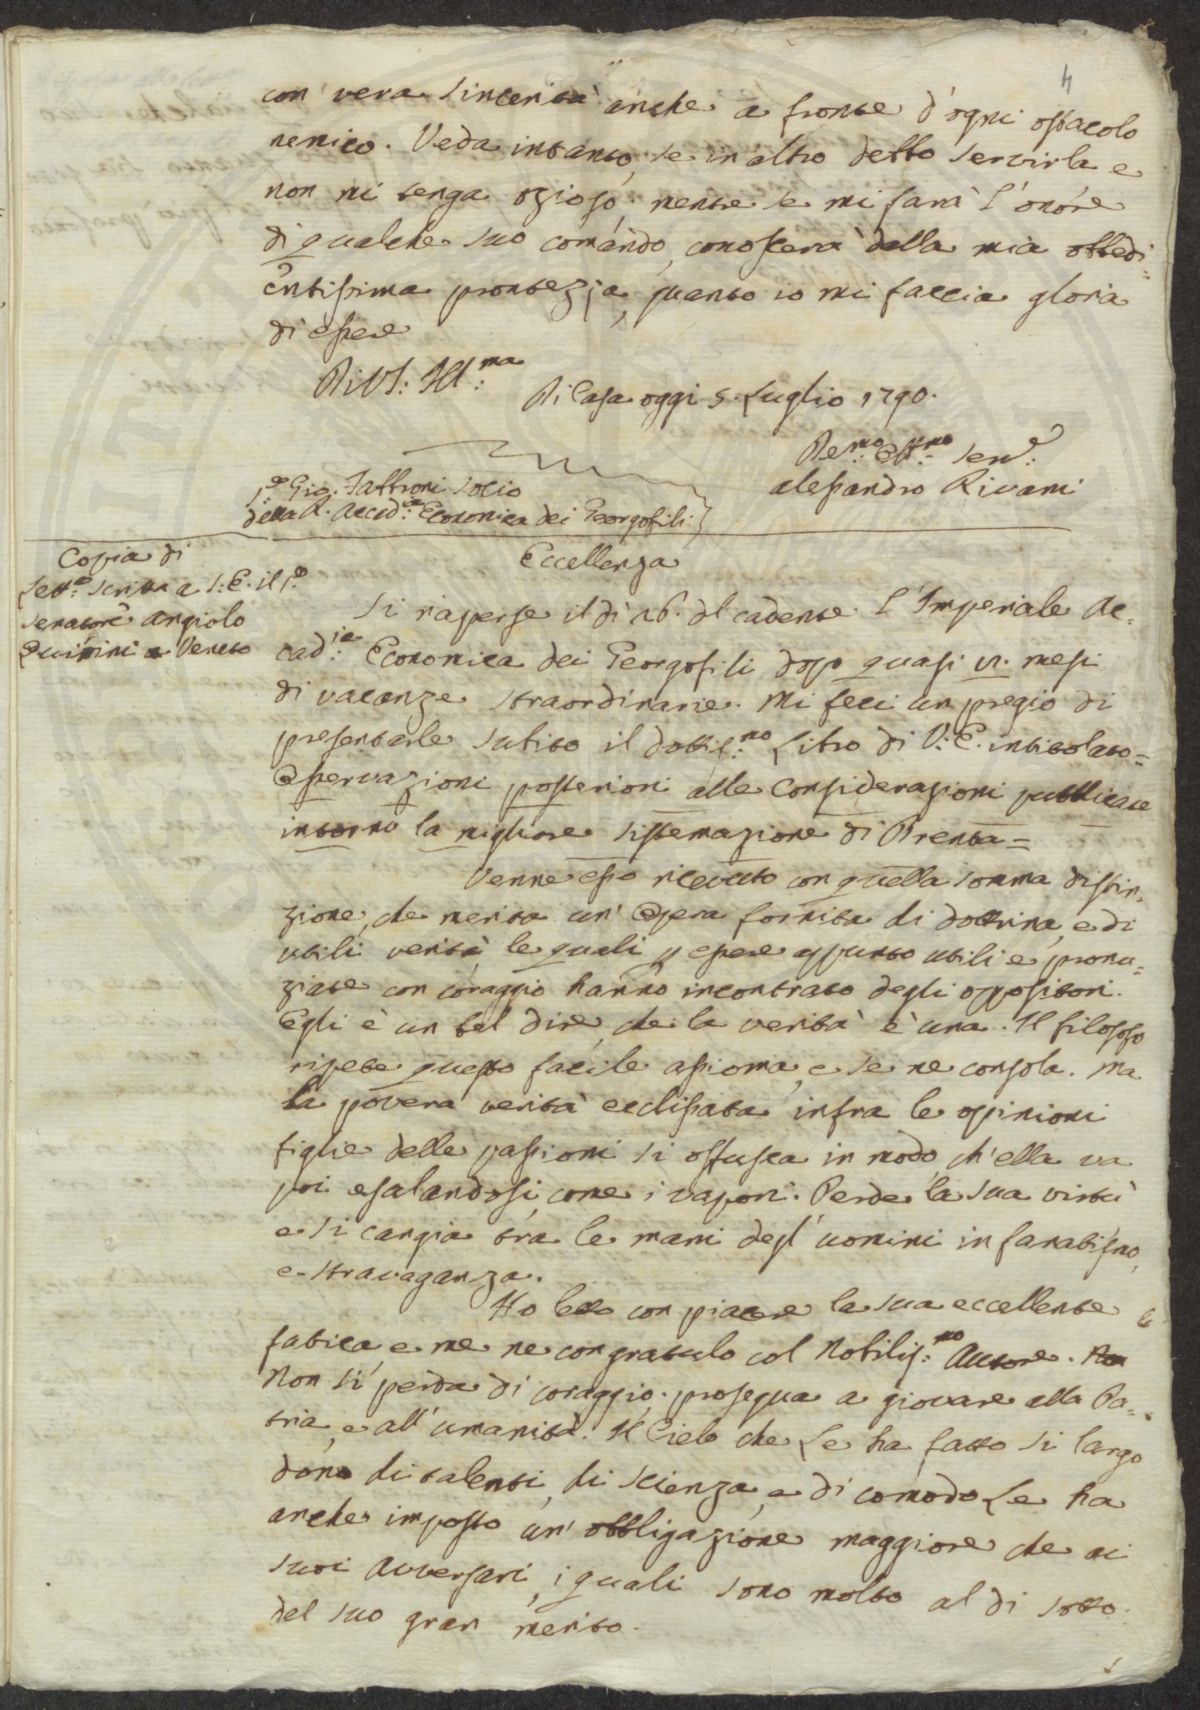 4
con vera sincerità anche a fronte d'ogni ostacolo
nemico. Veda intanto, se in altro debbo servirla e
non mi tenga ozioso, mentre se mi farà l'onore
di qualche suo comando, conoscerà dalla mia obbedi=
entissima prontezza, quanto io mi faccia gloria
di essere
Di VS: Ill:ma
Di Casa oggi 5. Luglio 1790.
De:mo Obb:mo Serv:e
Alessandro Rivani
S:e Gio. Fabbroni Socio
della R. Accad:a Economica dei Georgofili
Copia di
Lett:a scritta a S: E. il S:e
Senatore Angiolo
Quirini a Veneto
Eccellenza
Si riaperse il dì 26. del cadente l'Imperiale Ac=
cad:ia Economica dei Georgofili dopo quasi VI. mesi
di vacanze straordinarie. Mi feci un pregio di
presentarle subito il dottis:mo Libro di V: E. intitolato=
Osservazioni posteriori alle Considerazioni pubblicate
intorno la migliore sistemazione di Brenta=
Venne esso ricevuto con quella somma distin=
zione, che merita un' Opera fornita di dottrina, e di
utili verità, le quali p essere appunto utili e pronu=
ziate con coraggio hanno incontrato degli oppositori.
Egli è un bel dire, che la verità è una. Il filosofo
ripete questo facile assioma, e se ne consola. Ma
la povera verità ecclissata infra le opinioni
figlie delle passioni si offusca in modo, ch'ella va
poi esalandosi, come i vapori. Perde la sua virtù
e si cangia tra le mani degl' uomini in fanatismo,
e stravaganza.
Ho letto con piacere la sua eccellente
fatica, e me ne congratulo col Nobilis:mo Autore.
Non si perda di coraggio, prosegua a giovare alla Pa=
tria, e all'umanità. Il Cielo che Le ha fatto sì largo
dono di talenti, di scienza, e di comodo Le ha
anche imposto un' obbligazione maggiore che ai
suoi Avversari, i quali sono molto al di sotto
del suo gran merito.